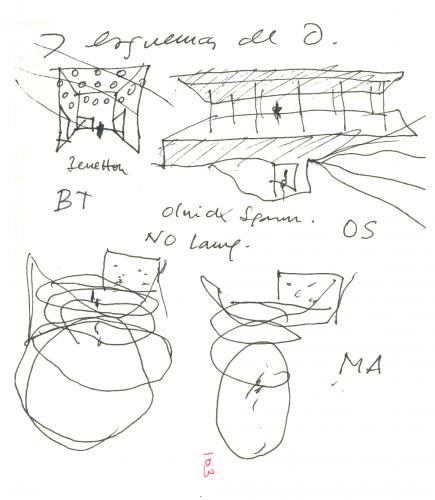 7 esquemas de O.
Benetton
BT
Olnick Spanu.
NO
OS
MA
103